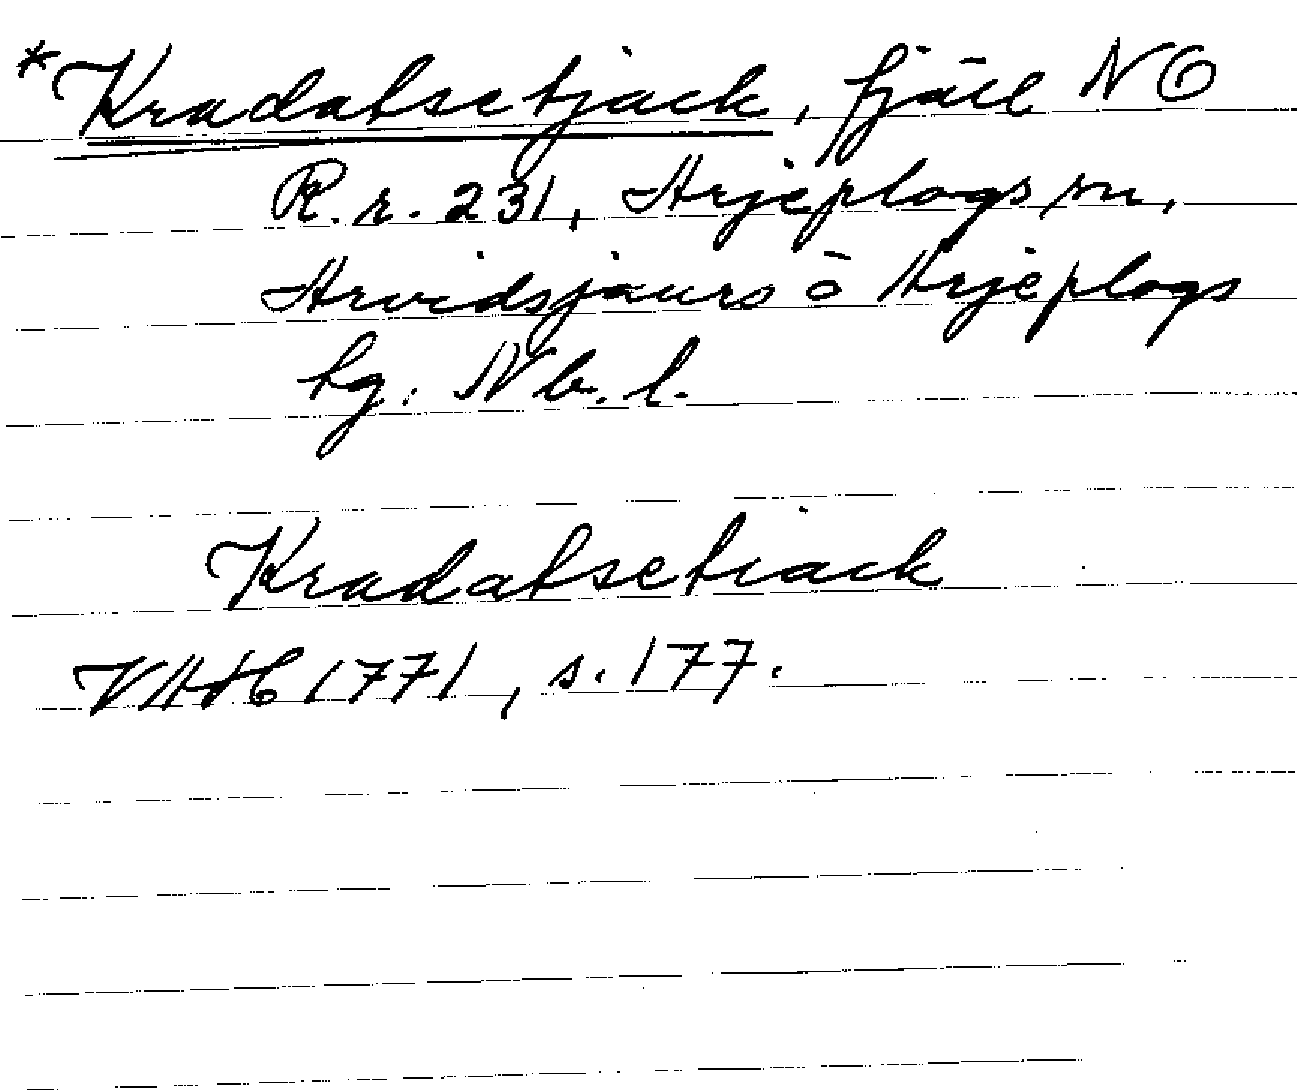 *Kradabsetjack, fjäll NO
R. r. 231, Arjeplogs sn,
Arvidsjaurs o Arjeplogs
tg. Nb. l.
Kradabsetiack
VHAH 1771, s. 177.